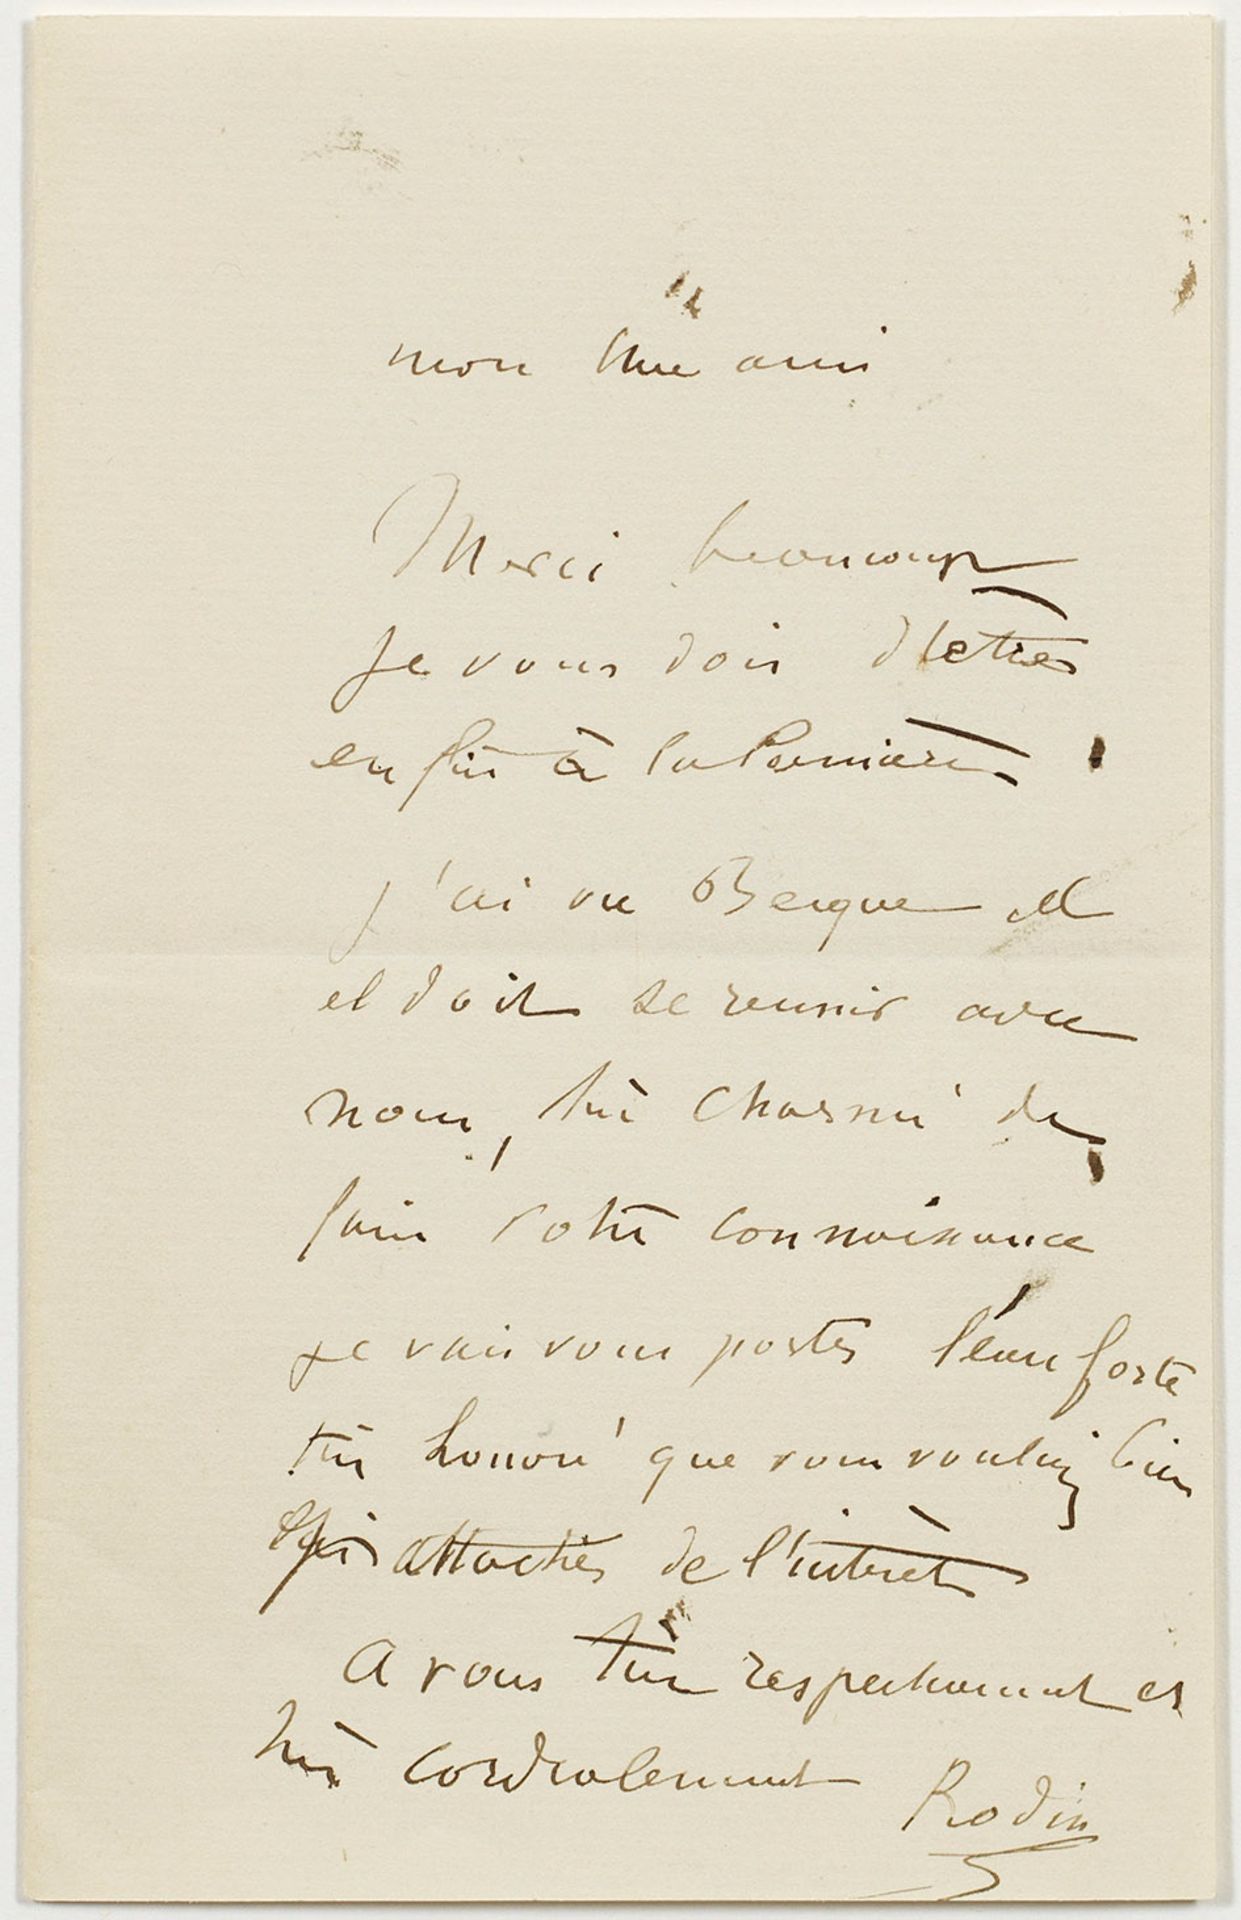 mon cher ami
Merci beaucoup
je vous dois d'etre
enfin à la lumière
j'ai vu Becque et
il doit se reunir avec
nous, très charmé de
faire votre connaissance
je vais vous porter l'eau forte
très honoré que vous vouliez bien
y attacher de l'intérèt
a vous très respectueusement et
très cordialement
Rodin